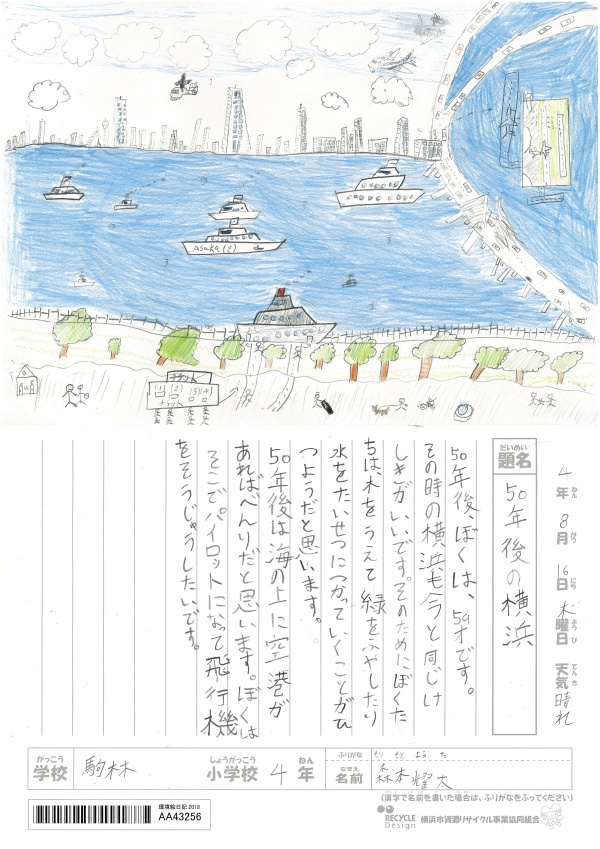 asuka(2)
チケット
(1) (2) (3) (4)
4年 8月 16日 木曜日 天気 晴れ
ねん がつ にち ようび てんき
だいめい
題名
50年後の横浜
50年後、ぼくは、59才です。
その時の横浜も今と同じけ
しきがいいです。そのためにぼくた
ちは、木をうえて緑をふやしたり
水をたいせつにつかっていくことがひ
つようだと思います。
50年後は海の上に空港が
あればべんりだと思います。ぼくは
そこでパイロットになって飛行機
をそうじゅうしたいです。
がっこう
学校
駒林
しょうがっこう
小学校
4
ねん
年
ふりがな
もり もと よう た
なまえ
名前
森本 耀太
(漢字で名前を書いた場合は、ふりがなをふってください)
環境絵日記 2018
AA43256
RECYCLE Design
横浜市資源リサイクル事業協同組合